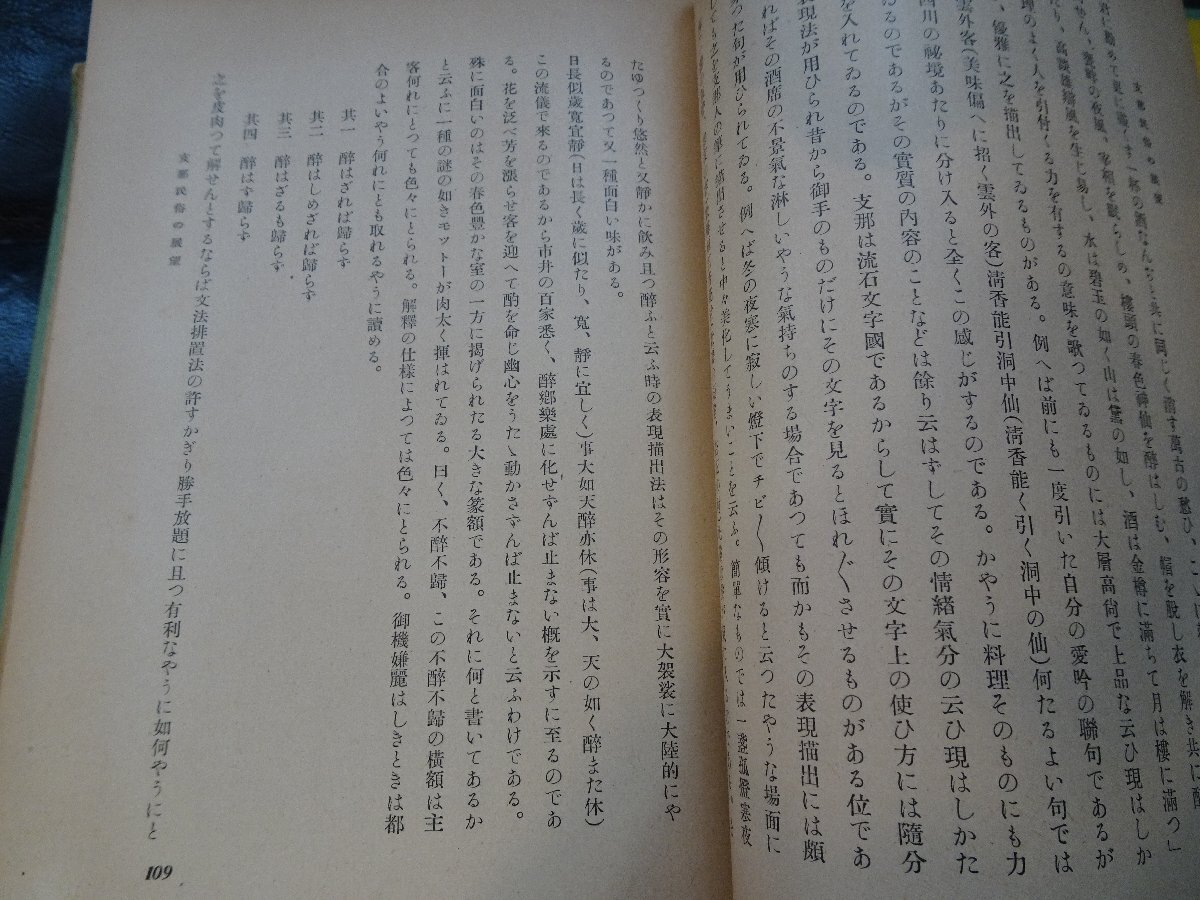 支那民俗の展望
高談雄辯風を生じ易し、水は碧玉の如く山は黛の如し、酒は金樽に滿ちて月は樓に滿つ」
理のよく人を引付くる力を有するの意味を歌つてゐるものには大層高尙で上品な云ひ現はしか
優雅に之を描出してゐるものがある。例へば前にも一度引いた自分の愛吟の聯句であるが
雲外客(美味偏へに招く雲外の客)淸香能引洞中仙(淸香能く引く洞中の仙)何たるよい句では
四川の秘境あたりに分け入ると全くこの感じがするのである。かやうに料理そのものにも力
ゐるのであるがその實質の內容のことなどは餘り云はずしてその情緖氣分の云ひ現はしかた
を入れてゐるのである。支那は流石文字國であるからして實にその文字上の使ひ方には隨分
表現法が用ひられ昔から御手のものだけにその文字を見るとほれ〴〵させるものがある位であ
ればその酒席の不景氣な淋しいやうな氣持ちのする場合であつても而かもその表現描出には頗
た句が用ひられてゐる。例へば冬の夜寒に寂しい燈下でチビ〳〵傾けると云つたやうな場面に
させると中々美化してうまいことを云ふ。簡單なものでは一盞孤燈寒夜
たゆつくり悠然と又靜かに飮み且つ醉ふと云ふ時の表現描出法はその形容を實に大袈裟に大陸的にや
るのであつて又一種面白い味がある。
日長似歲寬宜靜(日は長く歲に似たり、寬、靜に宜しく)事大如天醉亦休(事は大、天の如く醉また休)
この流儀で來るのであるから市井の百家悉く、醉鄕樂處に化せずんば止まない槪を示すに至るのであ
る。花を泛べ芳を漲らせ客を迎へて酌を命じ幽心をうたゝ動かさずんば止まないと云ふわけである。
殊に面白いのはその春色豐かな室の一方に揭げられたる大きな篆額である。それに何と書いてあるか
と云ふに一種の謎の如きモットーが肉太く揮はれてゐる。曰く、不醉不歸、この不醉不歸の橫額は主
客何れにとつても色々にとられる。解釋の仕樣によつては色々にとられる。御機嫌麗はしきときは都
合のよいやう何れにとも取れるやうに讀める。
其一　醉はざれば歸らず
其二　醉はしめざれば歸らず
其三　醉はざるも歸らず
其四　醉はす歸らず
之を皮肉つて解せんとするならば文法排置法の許すかぎり勝手放題に且つ有利なやうに如何やうにと
支那民俗の展望
109